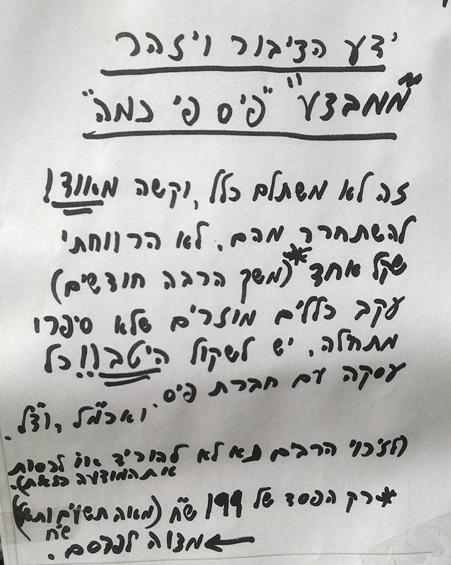 ידע הציבור ויזהר
ממבצע "פיס פי כמה"
זה לא משתלם כלל, וקשה מאוד!
להשתחרר מהם. לא הרווחתי
שקל אחד* (משך הרבה חודשים)
עקב כללים מוזרים שלא סיפרו
מתחלה. יש לשקול היטב!! כל
עסקה עם חברת פיס.
ואכמ"ל, וד"ל.
(לזיכוי הרבים נא לא להוריד או לכסות
את המודעה הזאת).
*רק הפסד של 199 ש"ח (מאה תשעים ותשע)
ש"ח
מצוה לפרסם.